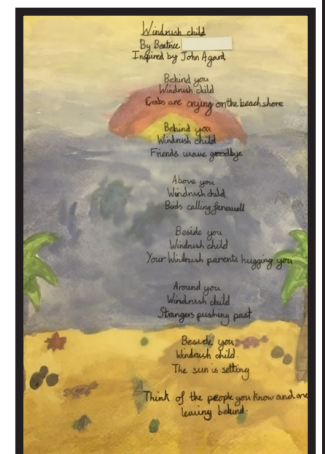 Windrush child
By Beatrice
Inspired by John Agard
Behind you
Windrush child
Crabs are crying on the beach shore
Behind you
Windrush child
Friends wave goodbye
Above you
Windrush child
Birds calling farewell
Beside you
Windrush child
Your Windrush parents hugging you
Around you
Windrush child
Strangers pushing past
Beside you
Windrush child
The sun is setting
Think of the people you know and are
leaving behind.